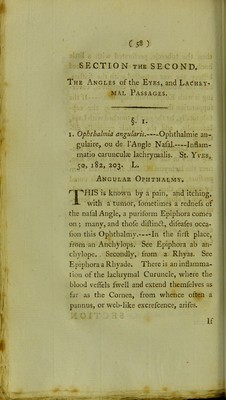 ( 58 )
SECTION THE SECOND.
THE ANGLES of the EYES, and LACHRY-
MAL PASSAGES.
§. 1.
1. Ophthalmia angularis.----Ophthalmie an-
gulaire, ou de l'Angle Nasal.----Inflam-
matio carunculæ lachrymalis. St. YVES,
50, 182, 203. L.
ANGULAR OPHTHALMY.
THIS is known by a pain, and itching,
with a tumor, sometimes a redness of
the nasal Angle, a puriform Epiphora comes
on; many, and these distinct, diseases occa-
sion this Ophthalmy.----In the first place,
from an Anchylops. See Epiphora ab an-
chylope. Secondly, from a Rhyas. See
Epiphora a Rhyade. There is an inflamma-
tion of the lachrymal Curuncle, where the
blood vessels swell and extend themselves as
far as the Cornea, from whence often a
pannus, or web-like excrescence, arises.
If